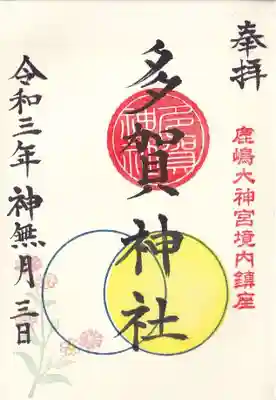 奉拝
鹿嶋大神宮境内鎮座
多賀神社
多賀神社
令和三年神無月三日